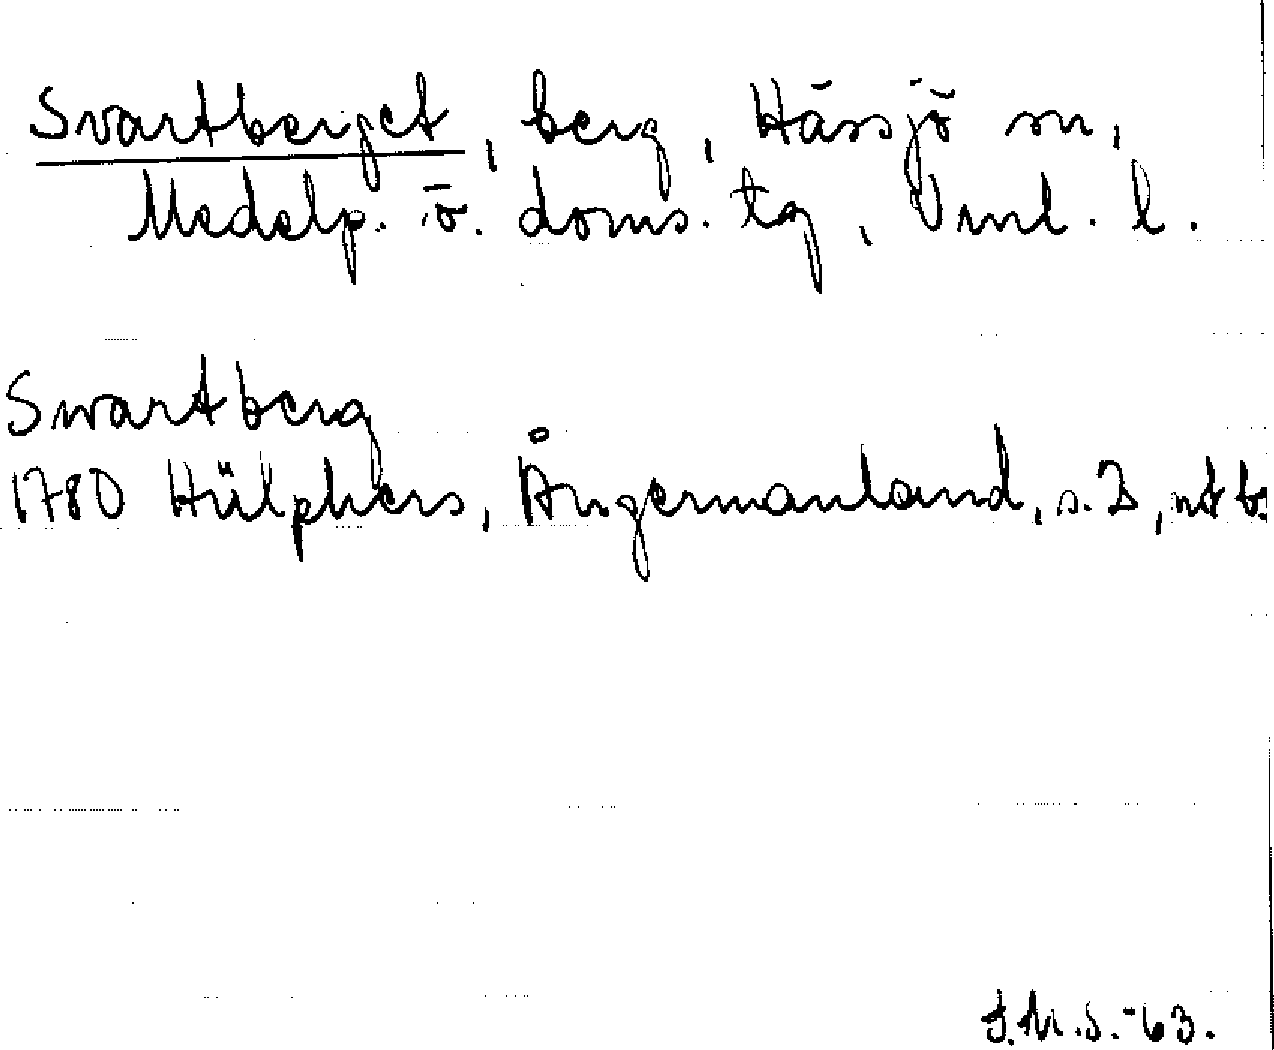 Svartberget, berg, Hässjö sn,
Medelp. ö. doms. tg, Vnl. l.
Swartberg
1780 Hülphers, Ångermanland, s. 2, not b.
S.M.S.-63.